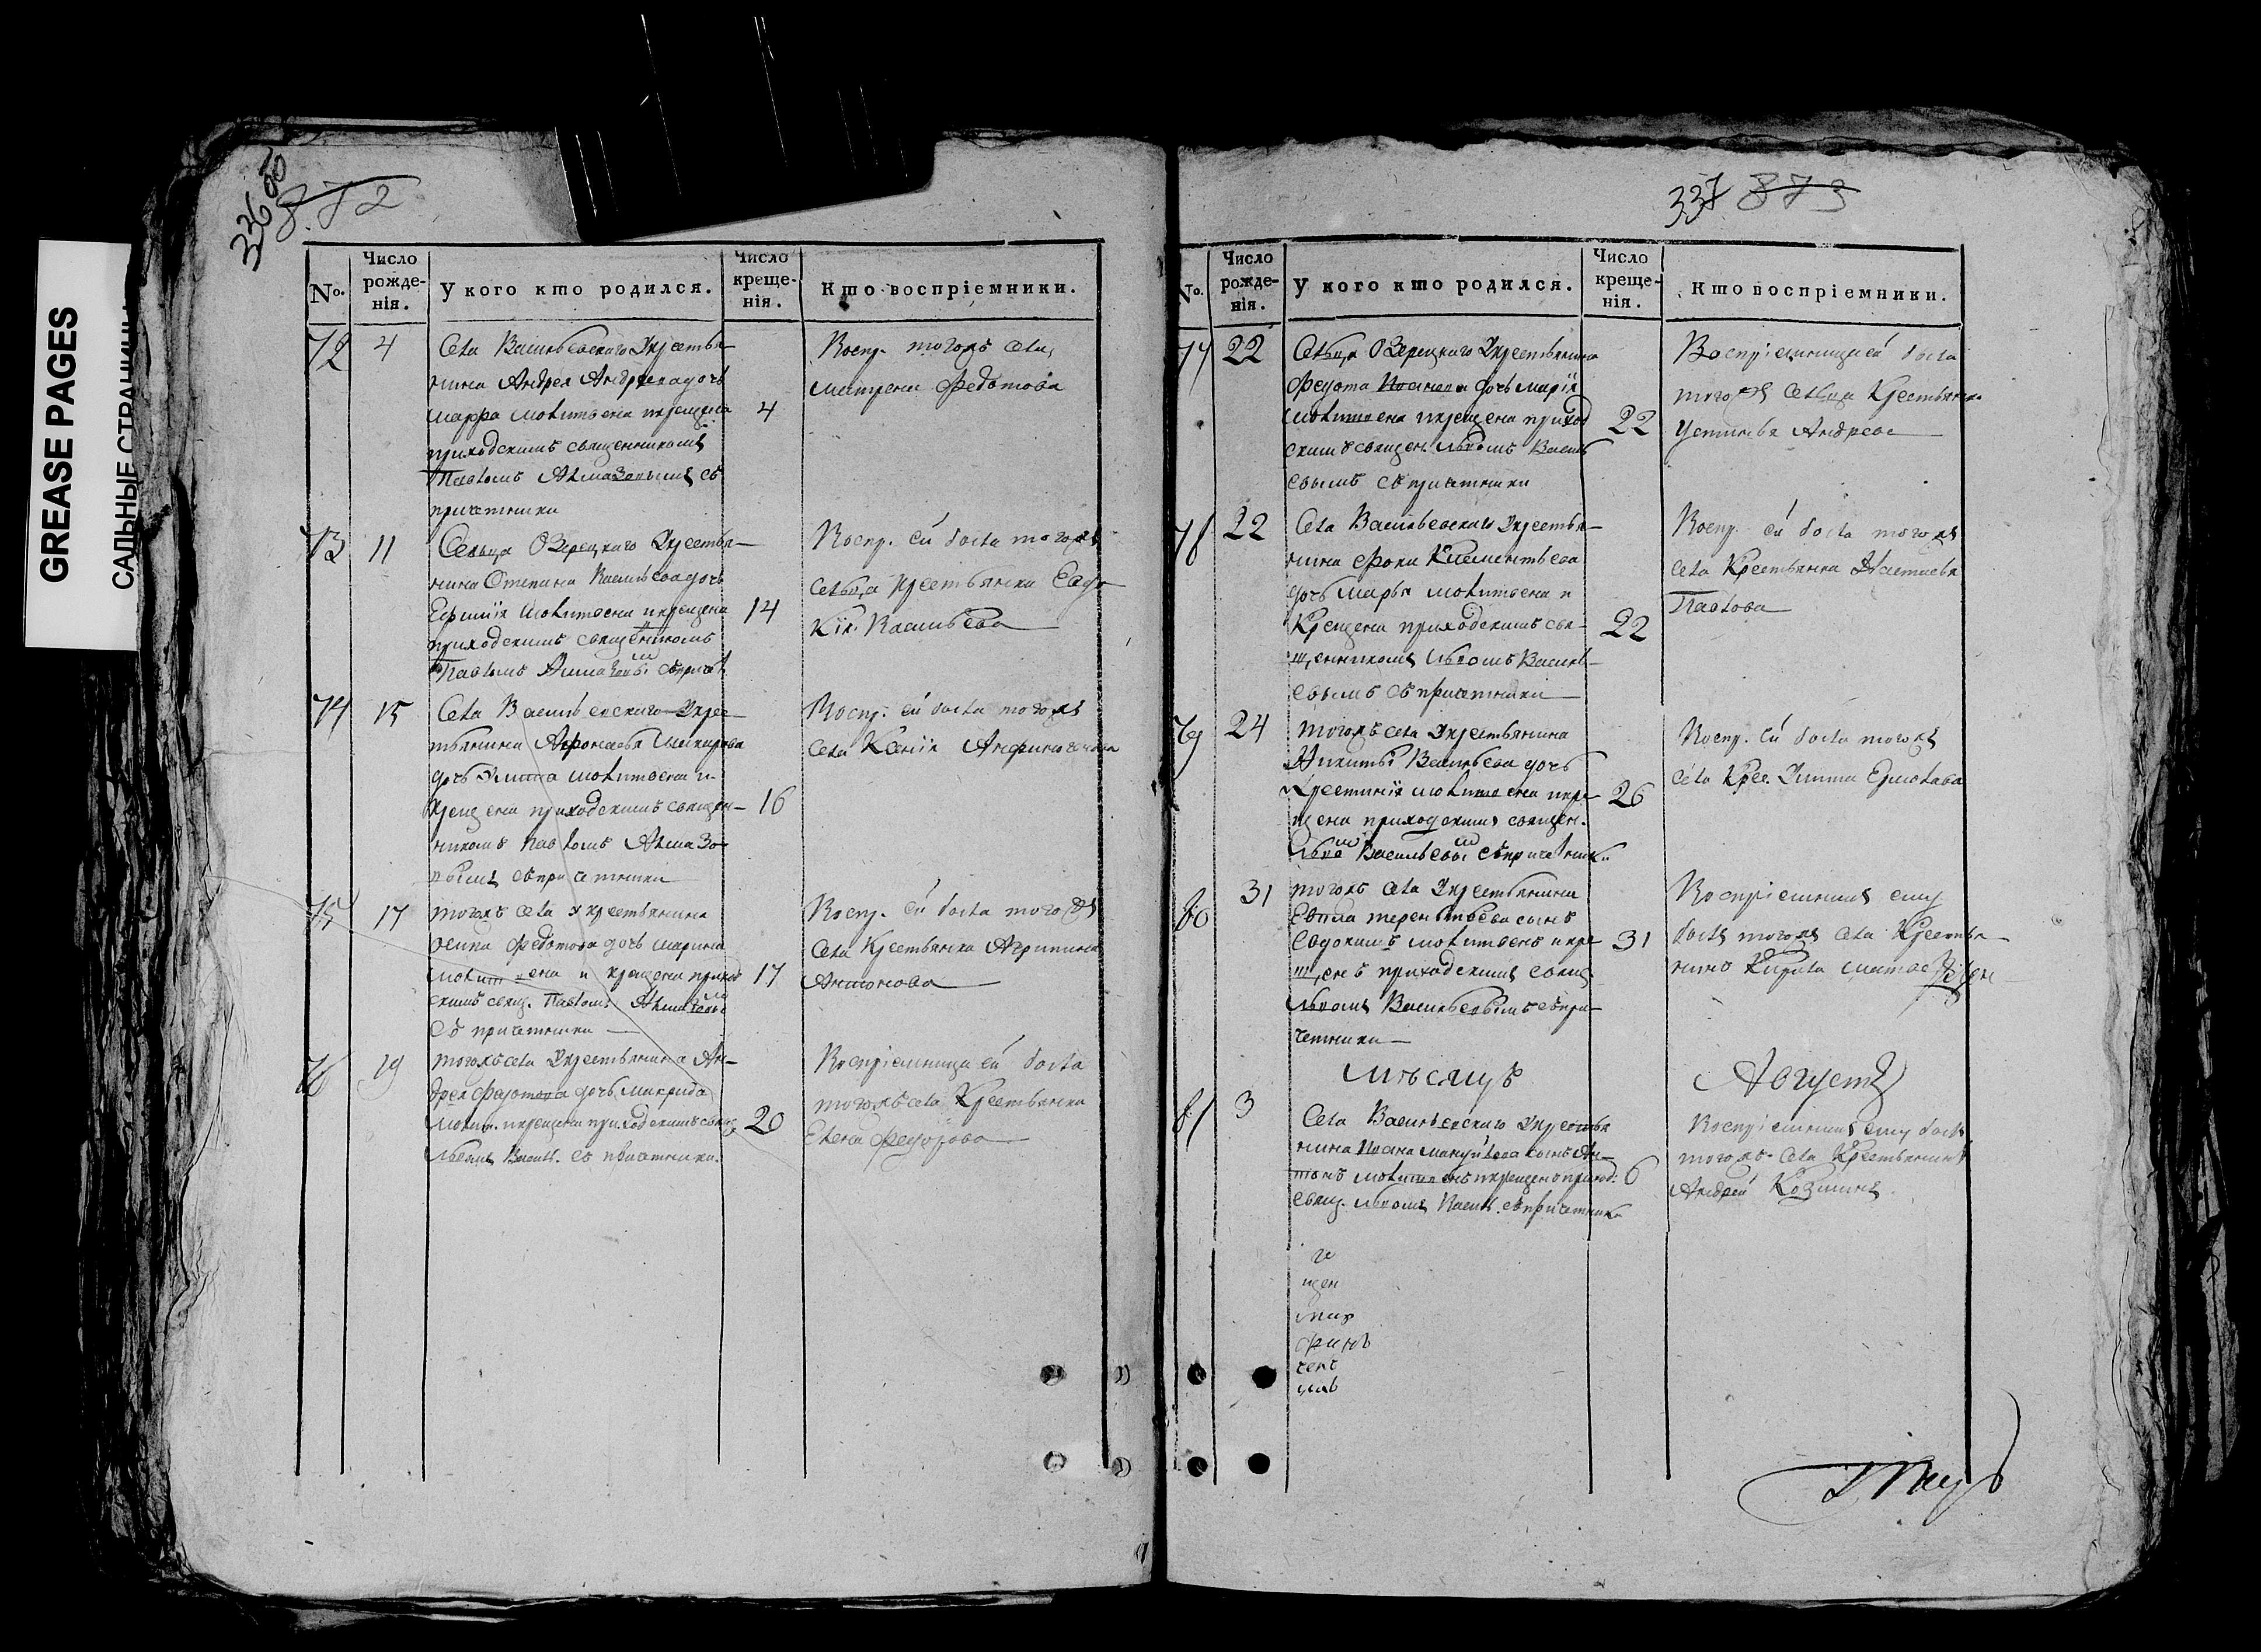 GREASE PAGES
САЛЬНЫЕ СТРАНИЦЫ
336 об
872
No.
Число рожде-нія.
У кого кто родился.
Число креще-нія.
Кто воспріемники.
72
4
Села Васильевскаго Укрестья-
нина Андрея Андреева дочь
Марфа молитвена и крещена
приходскимъ священникомъ
Павломъ Алмазовымъ съ
причетники
4
Воспр. тогожъ села,
матрена Федотова
73
11
Сельца Озерецкаго Укрестья-
нина Степана Васильева дочь
Ефимія молитвена и крещена
приходскимъ священикомъ
Павломъ Алмазовы съ причет
14
Воспр. ей была тогожъ
сельца крестьянка Евдо
кія Васильева
74
15
Села Васильевскаго Укрес-
тьянина
дочь молитвена и
крещена приходскимъ священ-
никомъ Павломъ Алмазо
вымъ съ причетники
16
Воспр. ей была тогожъ
села Ксенія
75
17
тогожъ села Укрестьянина
осипа Федотова дочь марина
молитвена и крещена приход
скимъ свящ. Павломъ Алмазовы
съ причетники
17
Воспр. ей была тогожъ
села Крестьянка Агрипина
Антонова
76
19
тогожъ села Укрестьянина Ан-
дрея Федотова дочь макрида
молит. и крещена приходскимъ свящ
Львомъ Васил. съ причетники.
20
Воспріемница ей была
тогожъ села Крестьянка
Елена Федорова
337 873
No.
Число рожде-нія.
У кого кто родился.
Число креще-нія.
Кто воспріемники.
77
22
Сельца Озерецкаго Укрестьянина
Федота дочь марія
молитвена и крещена приход
скимъ священ. Львомъ Василь
евымъ съ причетники
22
Воспріемницей была
тогожъ сельца Крестьянка
Устинья Андреева
78
22
Села Васильевскаго Укрестья-
нина Фрола Клементьева
дочь Марья молитвена и
Крещена приходскимъ свя-
щенникомъ Львомъ Василь-
евымъ съ причетники
22
Воспр. ей была тогожъ
села Крестьянка Настасья
Павлова
79
24
тогожъ села Укрестьянина
Никиты Васильева дочь
Крестинія молитвена и кре
щена приходскимъ священ.
Льво Васильевы съ причетники
26
Воспр. ей была тогожъ
села Крес. Ермолаева
80
31
тогожъ села Укрестьянина
Евпла терентьева сынъ
Евдокимъ молитвенъ и кре
щенъ приходскимъ свящ
Львомъ Васильевымъ съ при-
четники
31
Воспріемникъ ему
былъ тогожъ села Крестья-
нинъ Кирила
Мѣсяцъ
Августъ
81
3
Села Васильевскаго Укрестья
нина Ивана Мануйлова сынъ Ан-
тонъ молитвенъ и крещенъ приход:
свящ. Львомъ Васил. съ причетники
6
Воспріемникъ ему былъ
тогожъ села Крестьянинъ
Андрей Козминъ
ге
щен